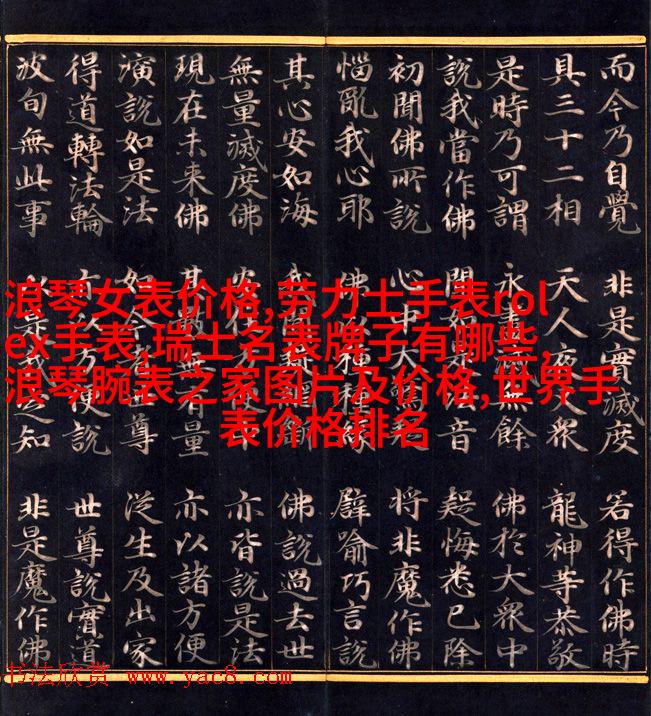 而今乃自覺 非是實滅度 若得作佛時
具三十二相 天人夜叉眾 龍神等恭敬
是時乃可謂 永盡滅無餘 佛於大眾中
說我當作佛 聞如是法音 疑悔悉已除
初聞佛所說 心中大 將非魔作佛
惱亂我心耶 佛以種種緣 譬喻巧言說
其心安如海 我聞疑網斷 佛說過去世
無量滅度佛 安住方便中 亦皆說是法
現在未來佛 其數無有量 亦以諸方便
演說如是法 如今者世尊 從生及出家
得道轉法輪 亦以方便說 世尊說實道
波旬無此事 以是我定知 非是魔作佛
浪琴女表价格,劳力士手表rol
ex手表,瑞士名表牌子有哪些,
浪琴腕表之家图片及价格,世界手
表价格排名
书法欣赏 www.yac8.com